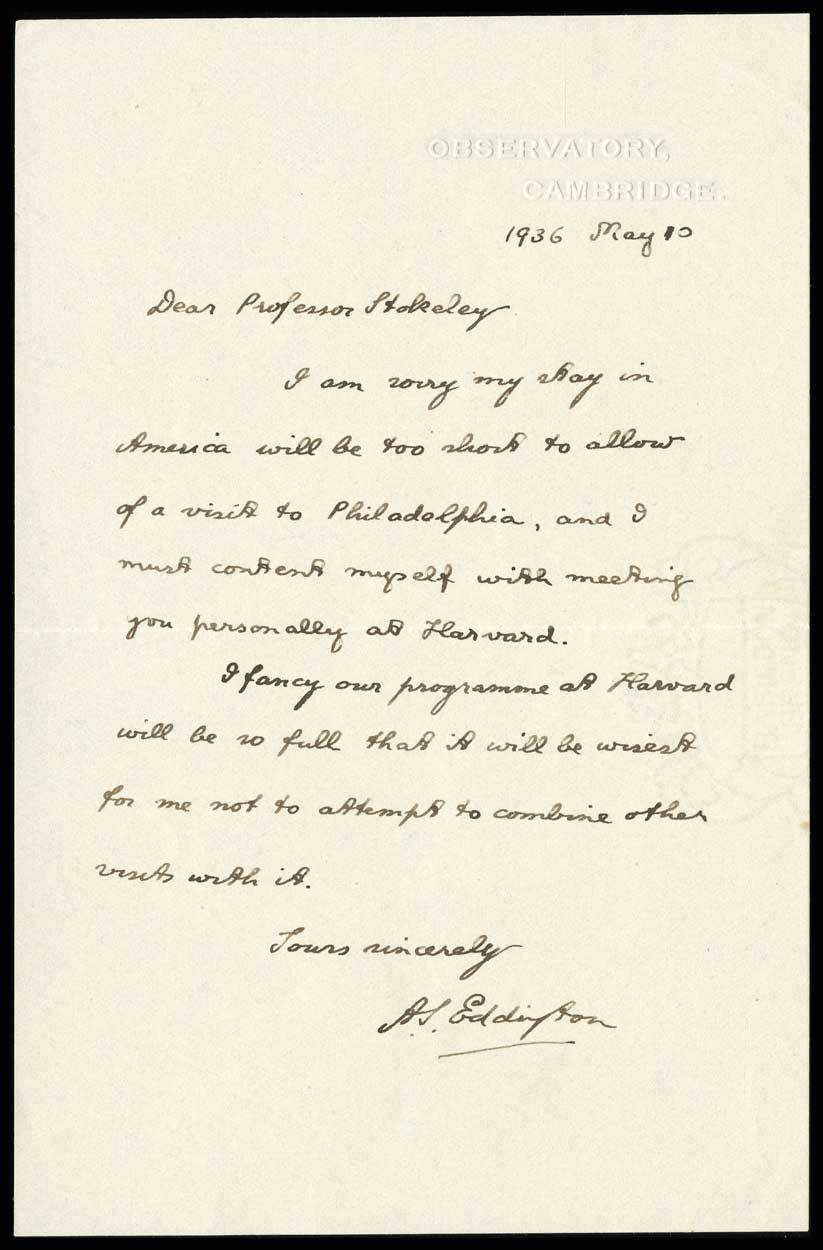 OBSERVATORY,
CAMBRIDGE.
1936 May 10
Dear Professor Stokeley
I am sorry my stay in
America will be too short to allow
of a visit to Philadelphia, and I
must content myself with meeting
you personally at Harvard.
I fancy our programme at Harvard
will be so full that it will be wisest
for me not to attempt to combine other
visits with it.
Yours sincerely
A.S. Eddington